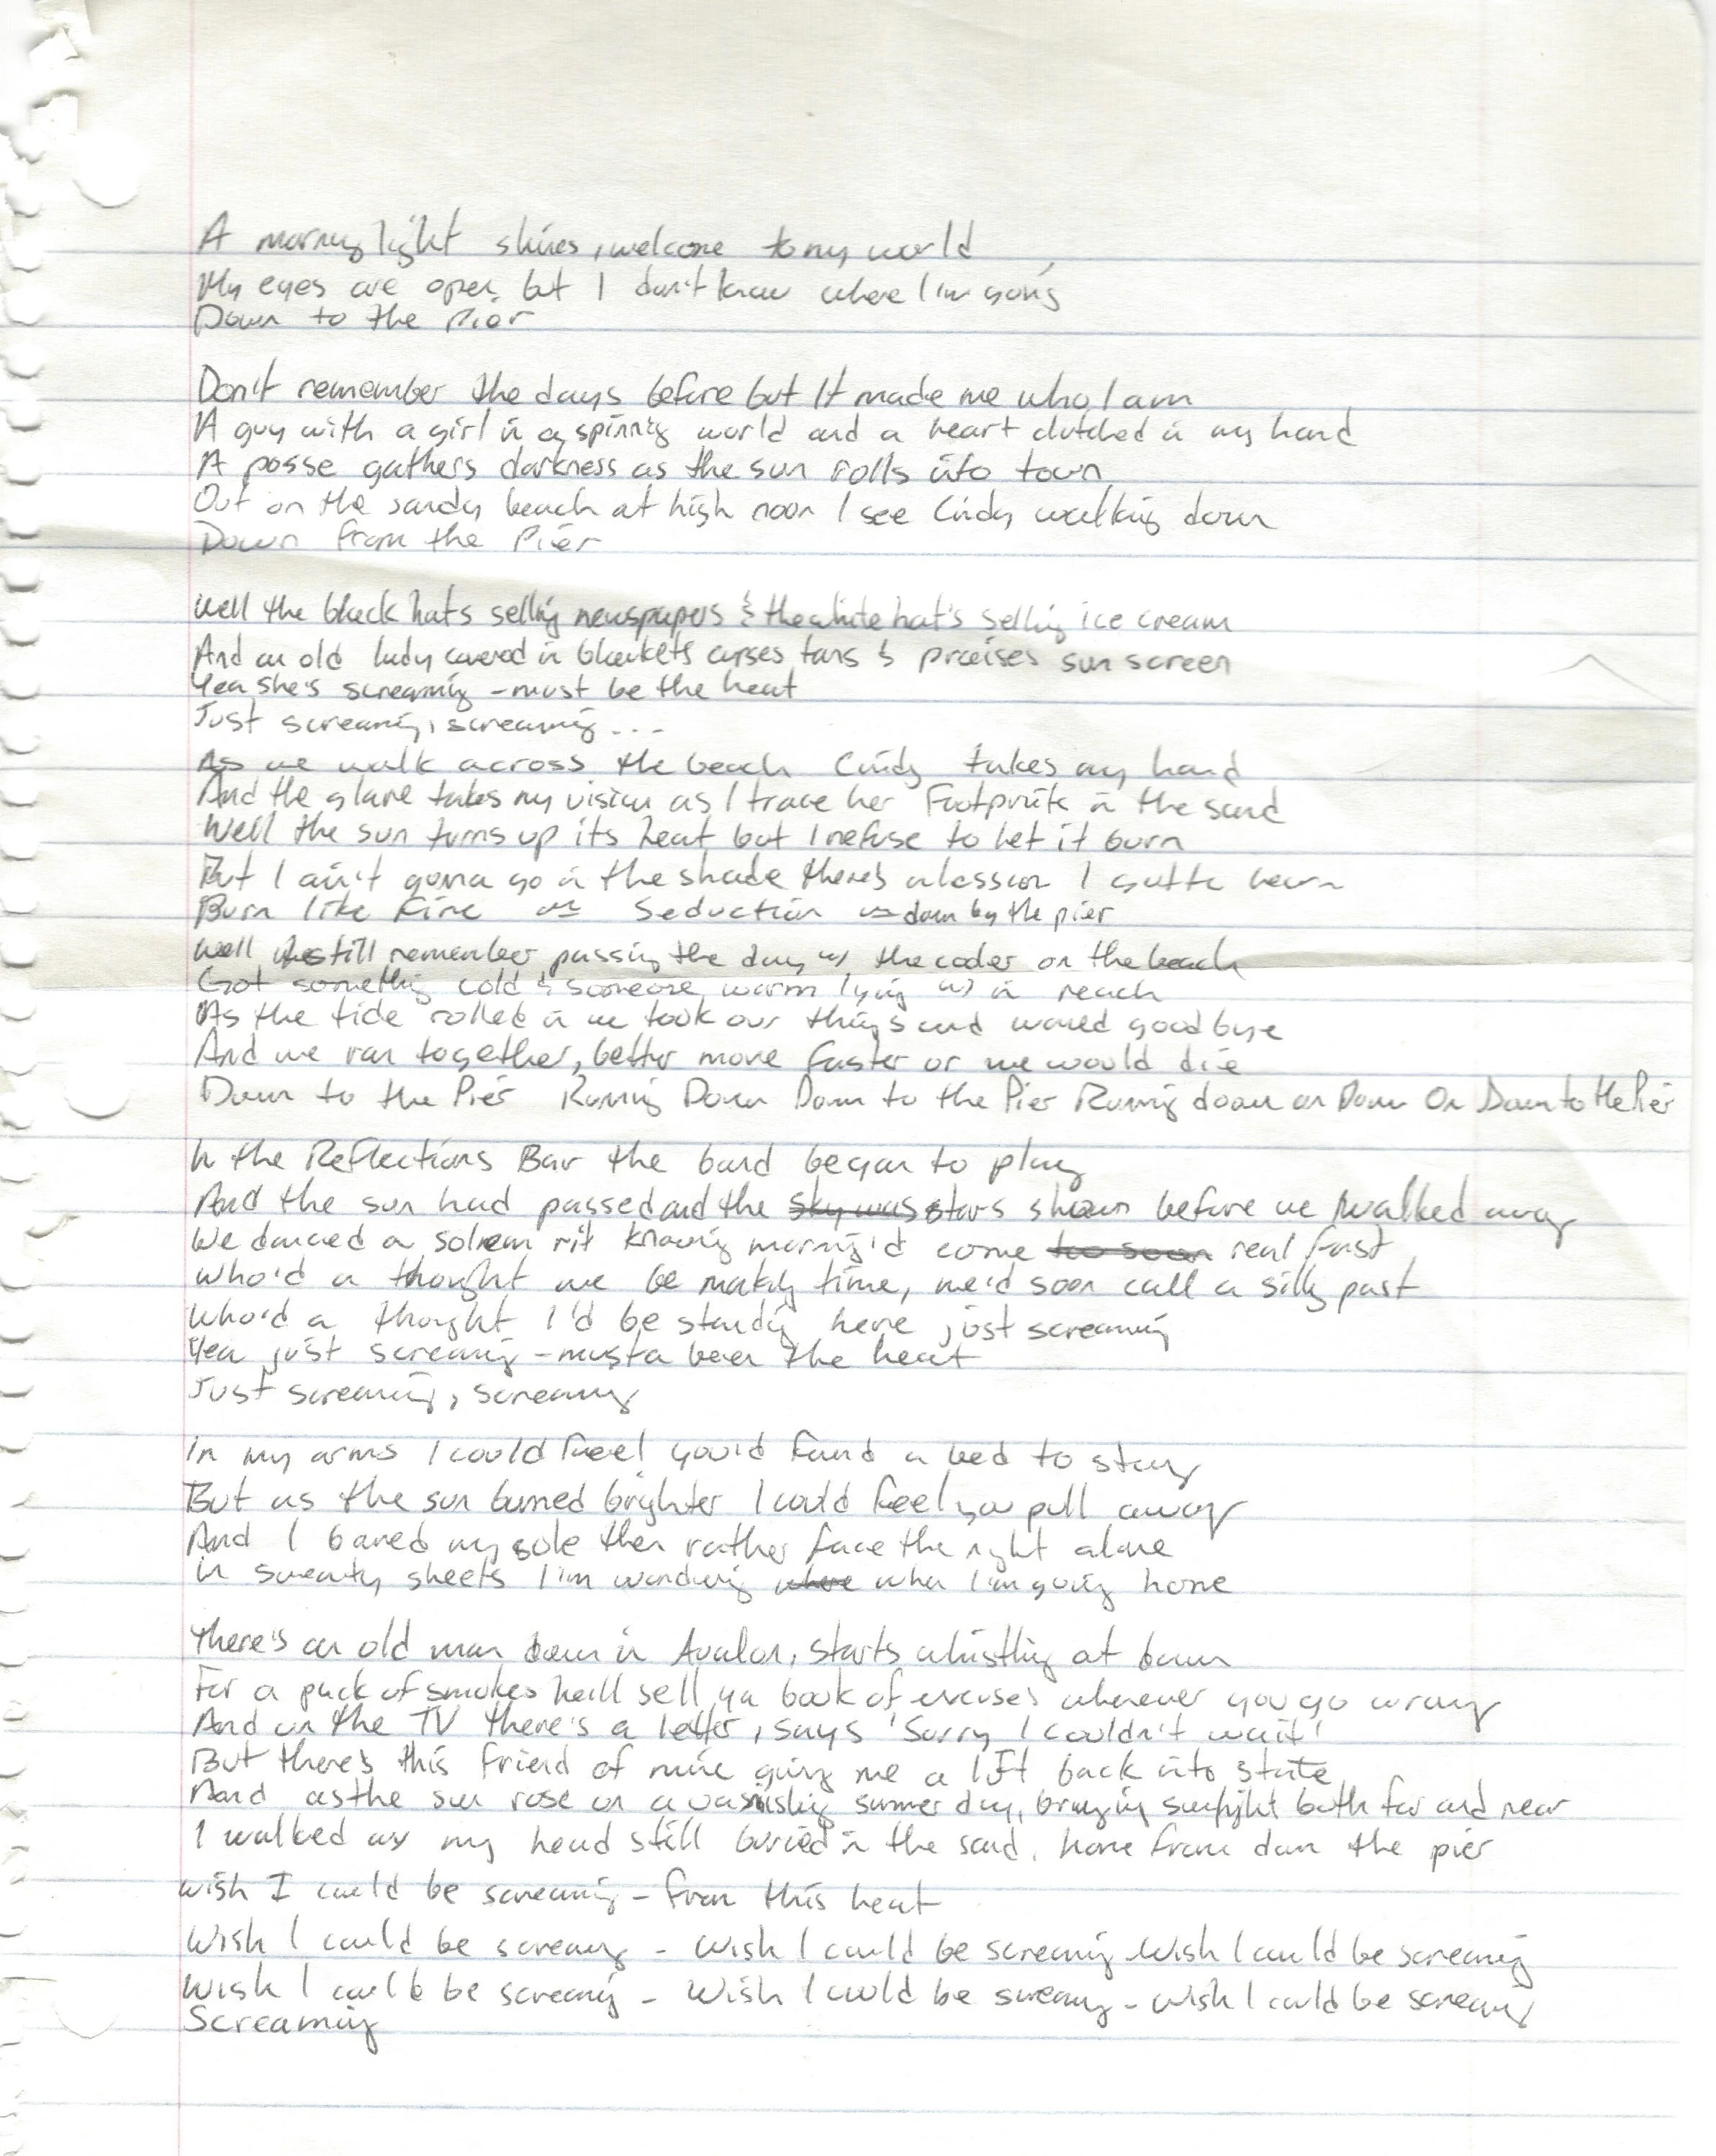 A morning light shines, welcome to my world
My eyes are open, but I don't know where I'm going
Down to the Pier
Don't remember the days before but It made me who I am
A guy with a girl in a spinning world and a heart clutched in my hand
A posse gathers darkness as the sun rolls into town
Out on the sandy beach at high noon I see Cindy walking down
Down from the Pier
Well the black hats selling newspapers & the white hat's selling ice cream
And an old lady covered in blankets curses tans & praises sun screen
Yea she's screaming - must be the heat
Just screaming, screaming...
As we walk across the beach Cindy takes my hand
And the glare takes my vision as I trace her Footprints in the sand
Well the sun turns up its heat but I refuse to let it burn
But I ain't gonna go in the shade there's a lesson I gotta learn
Burn like Fire Seduction down by the pier
Well still remember passing the day w/ the cooler on the beach
Got something cold & someone warm lying w/ in reach
As the tide rolled in we took our things and waved goodbye
And we ran together, better move faster or we would die
Down to the Pier Running Down Down to the Pier Running down on Down On Down to the Pier
In the Reflections Bar the band began to play
And the sun had passed and the sky was stars shown before we walked away
We danced a solem rit knowing morning'd come too soon real fast
Who'd a thought we be making time, we'd soon call a silly past
Who'd a thought I'd be standing here just screaming
Yea just screaming - musta been the heat
Just screaming, screaming
In my arms I could feel you'd found a bed to stay
But as the sun burned brighter I could feel you pull away
And I bared my sole then rather face the night alone
In sweaty sheets I'm wondering where when I'm going home
There's an old man down in Avalon, starts whistling at dawn
For a pack of smokes he'll sell ya book of excuses whenever you go wrong
And on the TV there's a letter, says 'Sorry I couldn't wait'
But there's this friend of mine giving me a lift back into state
And as the sun rose on a vanishing summer day, bringing sunlight both far and near
I walked my head still buried in the sand, home from down the pier
Wish I could be screaming - from this heat
Wish I could be screaming - Wish I could be screaming - Wish I could be screaming
Wish I could be screaming - Wish I could be screaming - Wish I could be screaming
Screaming